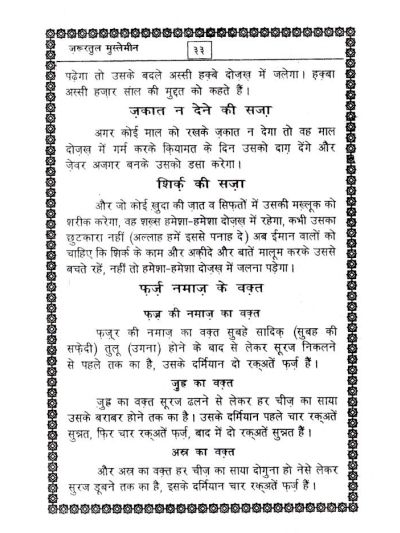 ज़रूरतुल मुस्लेमीन
३३
पढ़ेगा तो उसके बदले अस्सी हक़्बे दोज़ख़ में जलेगा। हक़्बा
अस्सी हज़ार साल की मुद्दत को कहते हैं।
ज़कात न देने की सज़ा
अगर कोई माल को रखके ज़कात न देगा तो वह माल
दोज़ख़ में गर्म करके क़ियामत के दिन उसको दाग़ देंगे और
ज़ेवर अजगर बनके उसको डसा करेगा।
शिर्क की सज़ा
और जो कोई ख़ुदा की ज़ात व सिफ़तों में उसकी मख़्लूक़ को
शरीक करेगा, वह शख़्स हमेशा-हमेशा दोज़ख़ में रहेगा, कभी उसका
छुटकारा नहीं (अल्लाह हमें इससे पनाह दे) अब ईमान वालों को
चाहिए कि शिर्क के काम और अक़ीदे और बातें मालूम करके उससे
बचते रहें, नहीं तो हमेशा-हमेशा दोज़ख़ में जलना पड़ेगा।
फ़र्ज़ नमाज़ के वक़्त
फ़ज्र की नमाज़ का वक़्त
फ़ज्र की नमाज़ का वक़्त सुबहे सादिक़ (सुबह की
सफ़ेदी) तुलू (उगना) होने के बाद से लेकर सूरज निकलने
से पहले तक का है, उसके दर्मियान दो रक्अतें फ़र्ज़ हैं।
जुह्र का वक़्त
जुह्र का वक़्त सूरज ढलने से लेकर हर चीज़ का साया
उसके बराबर होने तक का है। उसके दर्मियान पहले चार रक्अतें
सुन्नत, फिर चार रक्अतें फ़र्ज़, बाद में दो रक्अतें सुन्नत हैं।
अस्र का वक़्त
और अस्र का वक़्त हर चीज़ का साया दोगुना हो नेसे लेकर
सुरज डूबने तक का है, इसके दर्मियान चार रक्अतें फ़र्ज़ हैं।